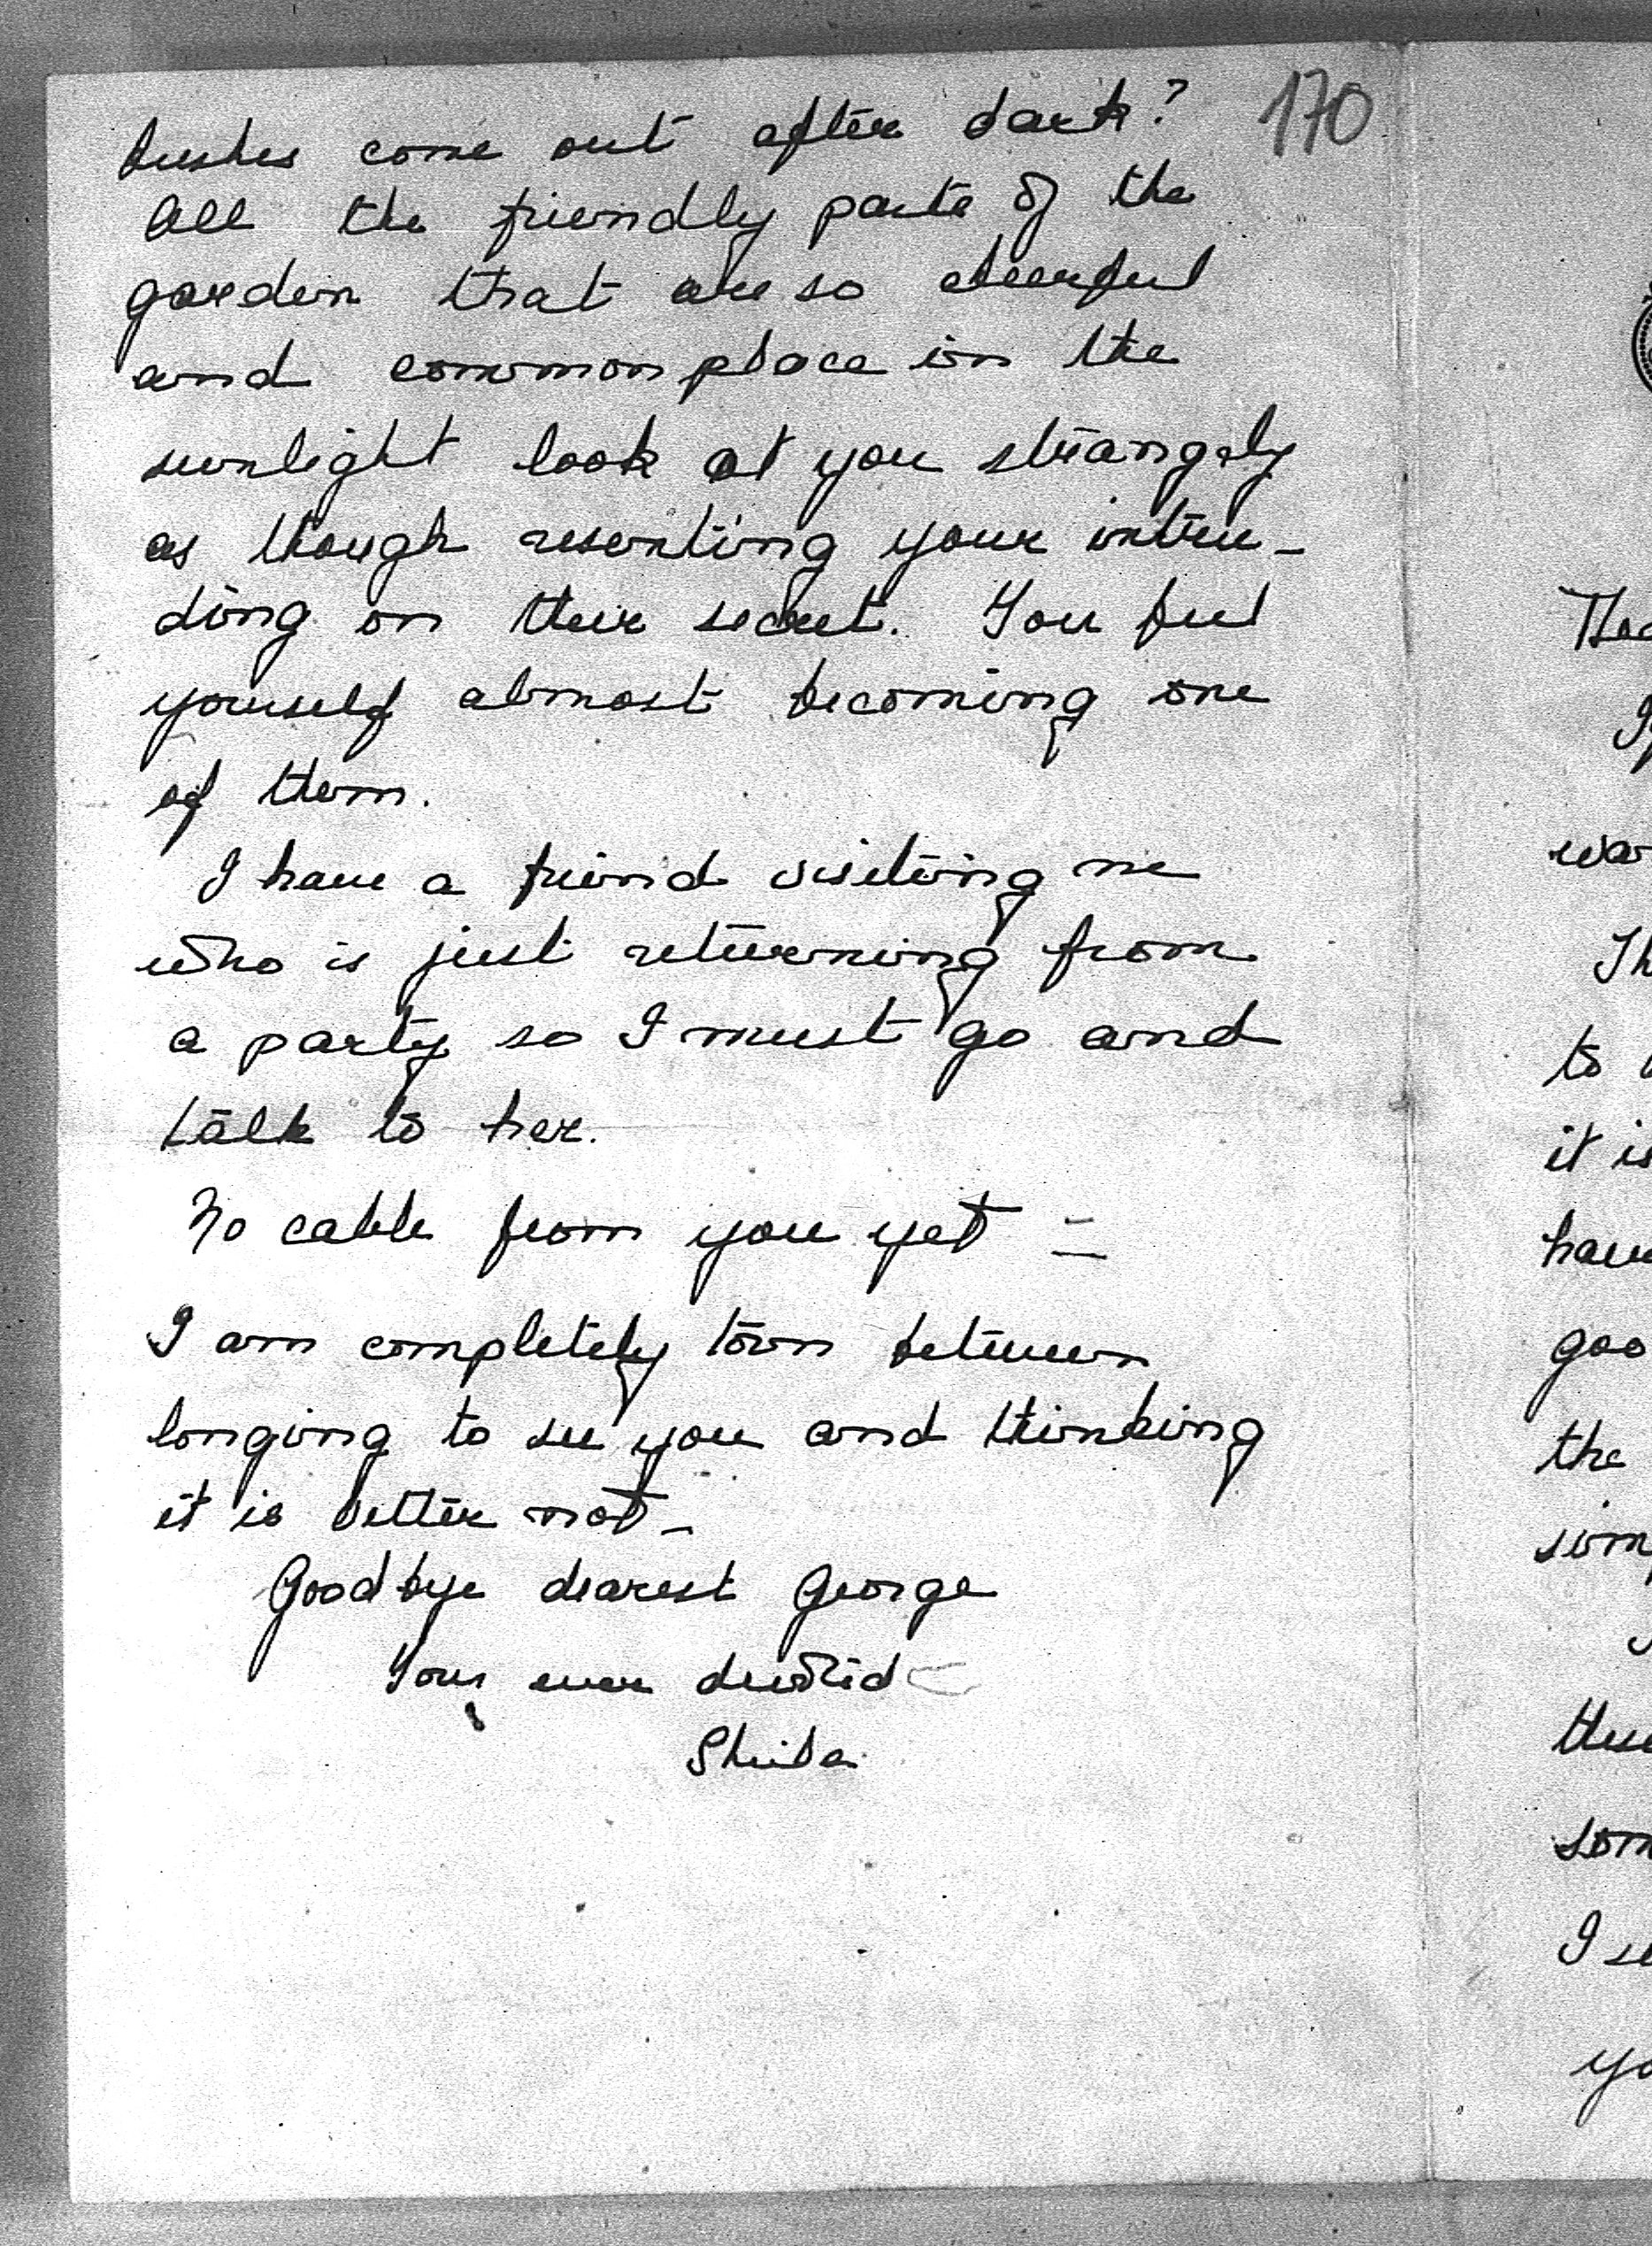 170
bushes come out after dark?
All the friendly parts of the
garden that are so cheerful
and commonplace in the
sunlight look at you strangely
as though resenting your intru-
ding on their secret. You feel
yourself almost becoming one
of them.
I have a friend visiting me
who is just returning from
a party so I must go and
talk to her.
No cable from you yet –
I am completely torn between
longing to see you and thinking
it is better not –
Goodbye dearest George
Your ever devoted
Sheila
wa
Th
to
it is
have
goo
the
sim
these
som
I se
yo